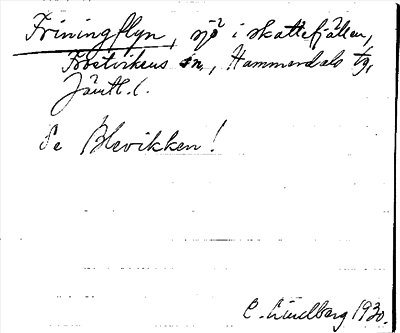 Friningflyn, sjö i skattefjällen,
Frostvikens sn, Hammerdals tg,
Jämtl. l.
Se Blevikken!
C. Lindberg 1930.